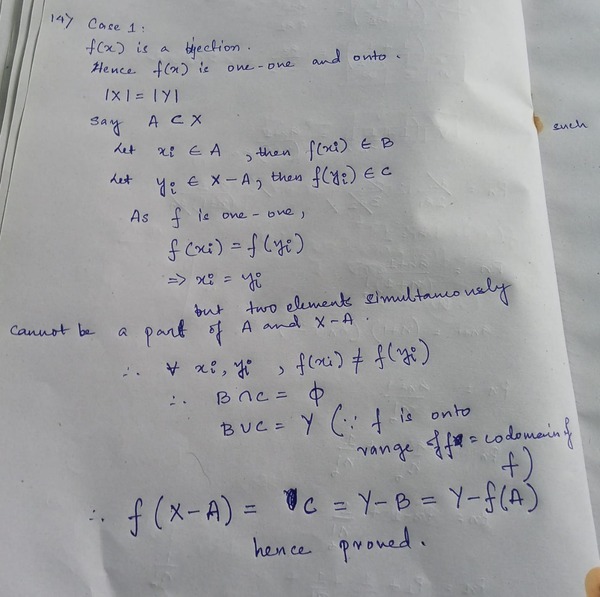 14) Case 1:
f(x) is a bjection.
Hence f(x) is one-one and onto.
|X| = |Y|
say A ⊂ X
Let xi ∈ A, then f(xi) ∈ B
Let yi ∈ X-A, then f(yi) ∈ C
As f is one-one,
f(xi) = f(yi)
=> xi = yi
but two elements simultaneously
cannot be a part of A and X-A.
∴ ∀ xi, yi, f(xi) ≠ f(yi)
∴ B∩C = ϕ
B∪C = Y (∵ f is onto
range of f = codomain of
f)
∴ f(X-A) = C = Y-B = Y-f(A)
hence proved.
such